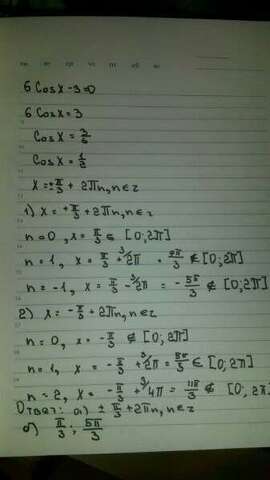 6 Cos x - 3 = 0
6 Cos x = 3
Cos x = 3/6
Cos x = 1/2
x = ± π/3 + 2πn, n ∈ z
1) x = + π/3 + 2πn, n ∈ z
n = 0, x = π/3 ∈ [0; 2π]
n = 1, x = π/3 + 2π = 7π/3 ∉ [0; 2π]
n = -1, x = π/3 - 2π = - 5π/3 ∉ [0; 2π]
2) x = - π/3 + 2πn, n ∈ z
n = 0, x = - π/3 ∉ [0; 2π]
n = 1, x = - π/3 + 2π = 5π/3 ∈ [0; 2π]
n = 2, x = - π/3 + 4π = 11π/3 ∉ [0; 2π]
Ответ: а) ± π/3 + 2πn, n ∈ z
б) π/3 ; 5π/3